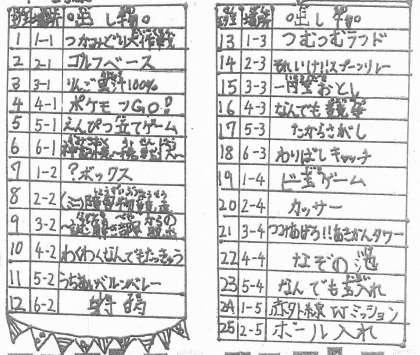 班 場所 出し物
1 1-1 つかみどり大作戦
2 2-1 ゴルフベース
3 3-1 りんご果汁100%
4 4-1 ポケモンGO!
5 5-1 えんぴつ立てゲーム
6 6-1
7 1-2 ?ボックス
8 2-2
9 3-2 からの
10 4-2 わくわくなんでもたっきゅう
11 5-2 うちあいバルンバレー
12 6-2
班 場所 出し物
13 1-3 つむつむランド
14 2-3 それいけ!!スプーンリレー
15 3-3 一円玉おとし
16 4-3 なんでも
17 5-3 たからさがし
18 6-3 わりばしキャッチ
19 1-4 ビー玉ゲーム
20 2-4 カッサー
21 3-4 つみあげろ!!あきかんタワー
22 4-4 なぞの
23 5-4 なんでも玉入れ
24 1-5 赤外線Wミッション
25 2-5 ボール入れ